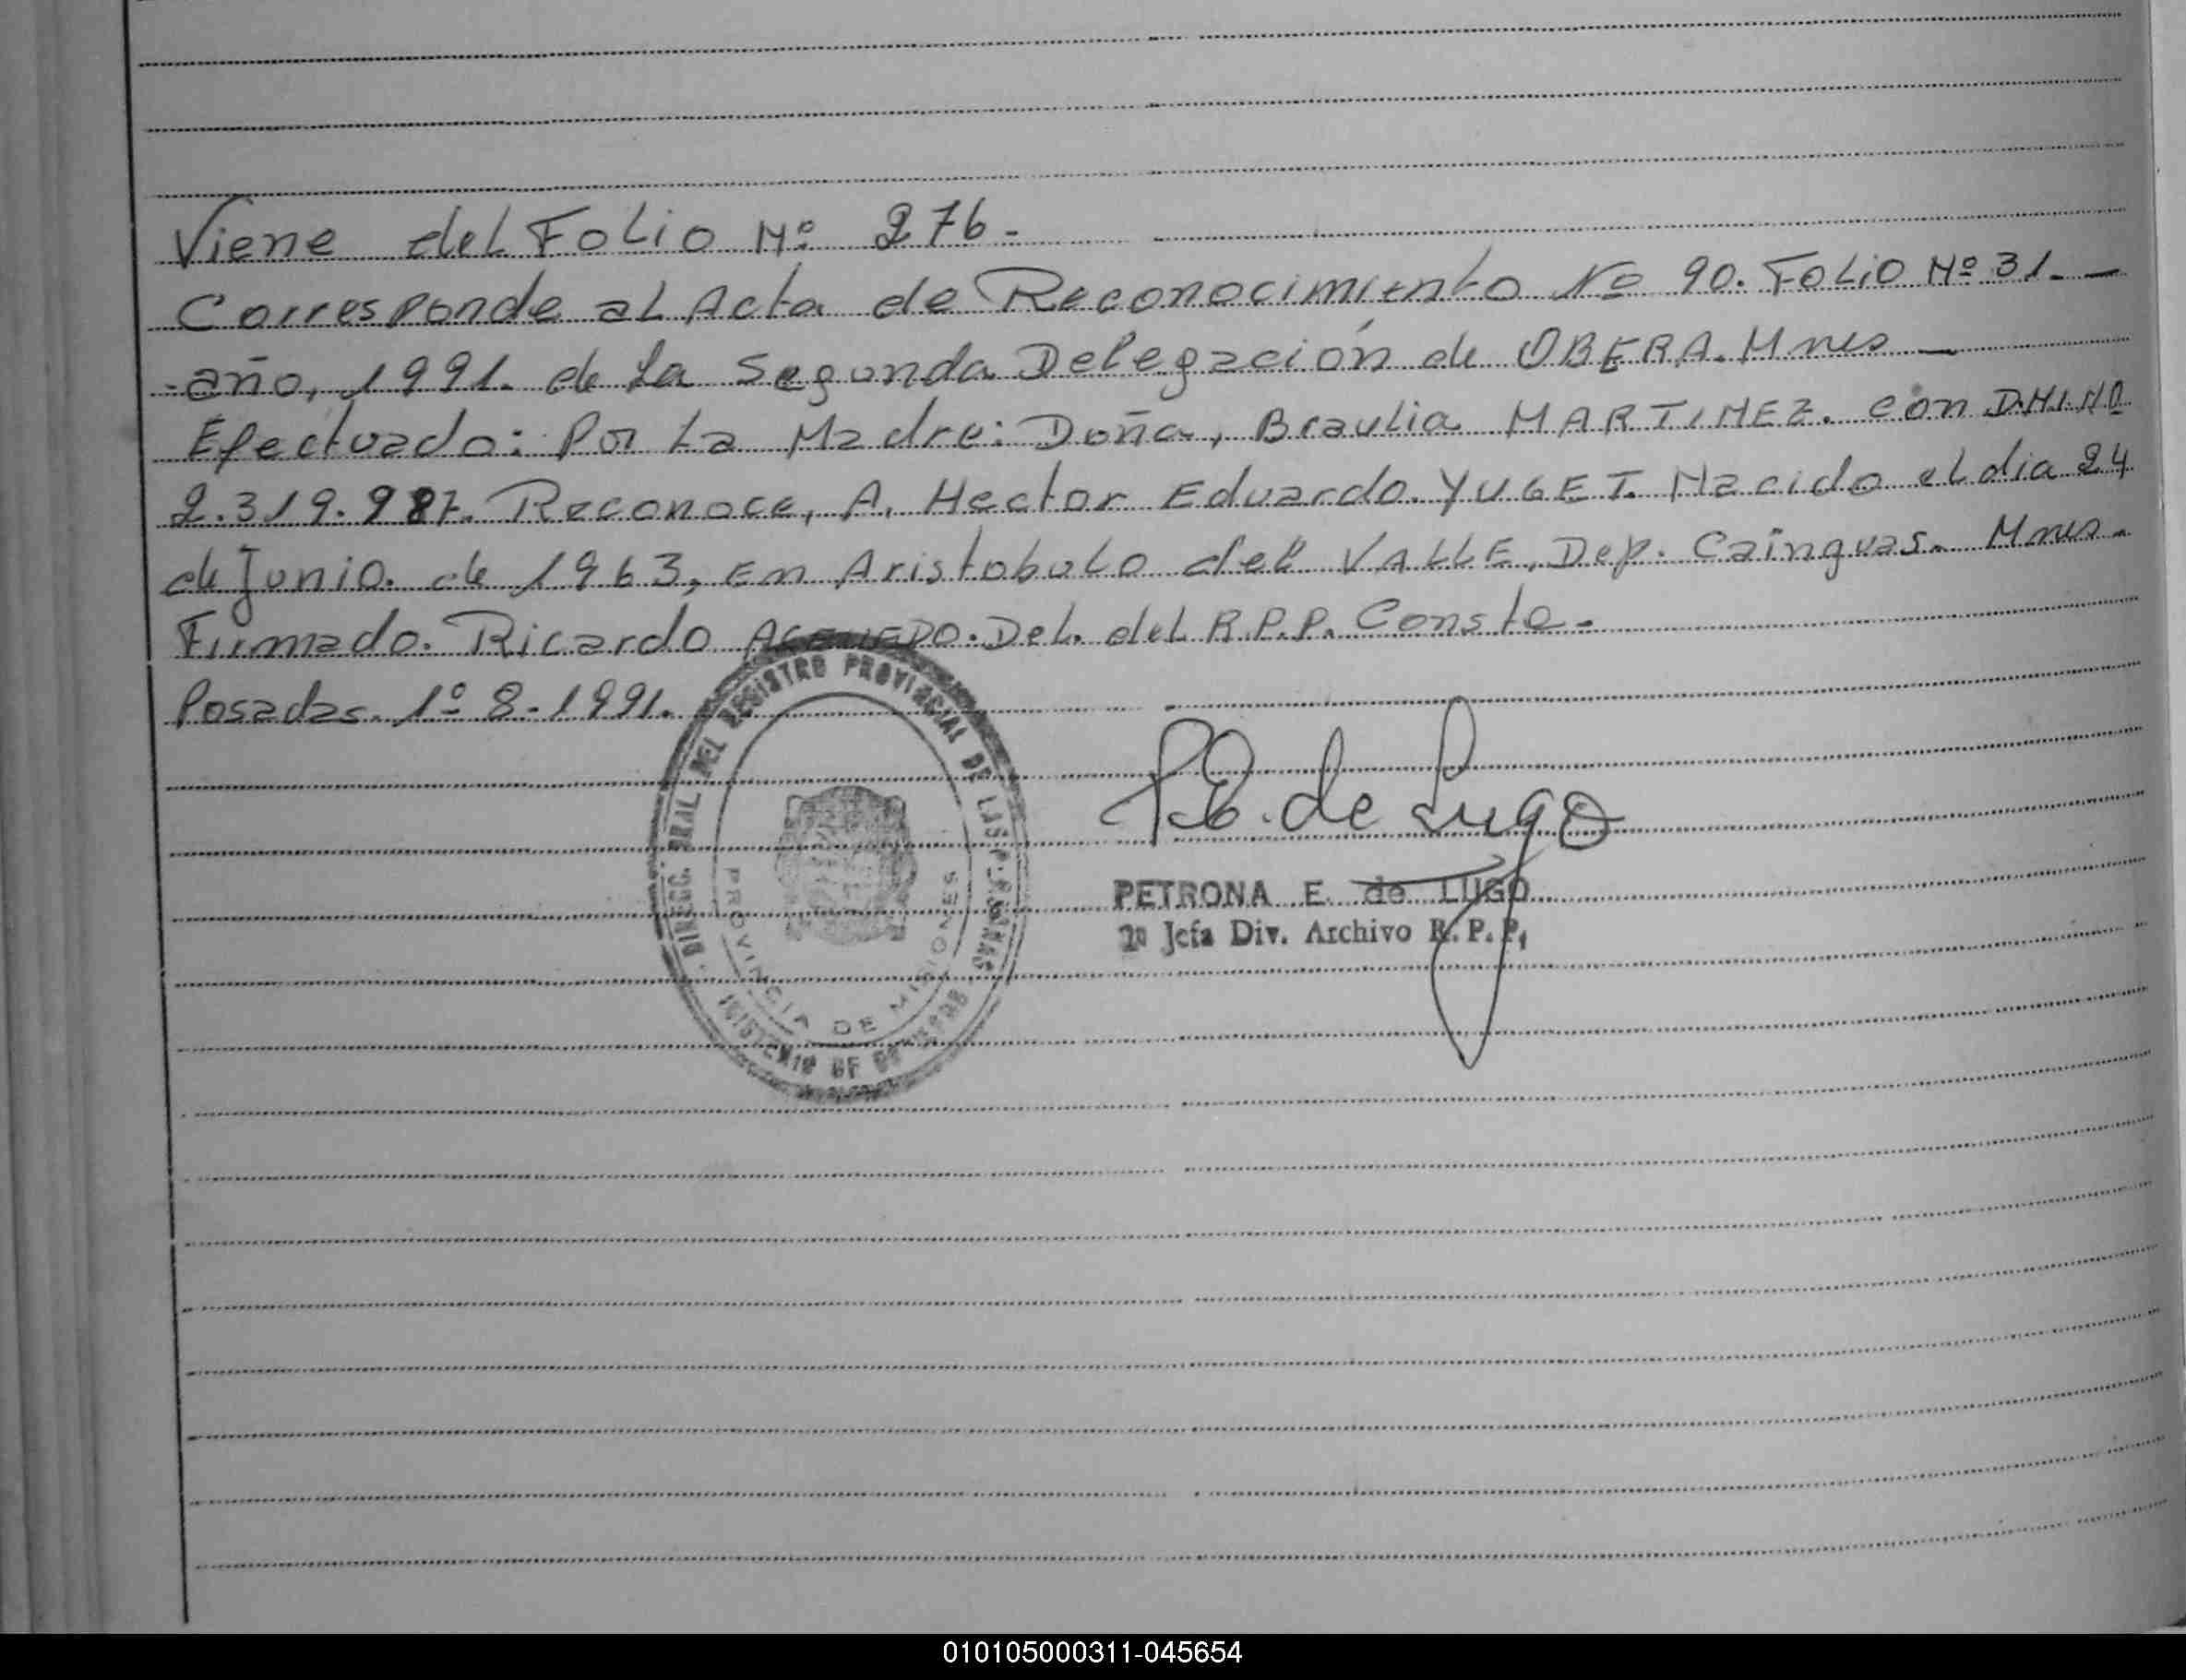 Viene del Folio Nº 276.
Corresponde al Acta de Reconocimiento Nº 90. Folio Nº 31.-
-año, 1991. de La Segunda Delegación de OBERA. Mnes -
Efectuado: Por La Madre: Doña, Braulia MARTINEZ. con D.N.I.Nº
2.319.987. Reconoce, A, Hector Eduardo. YUGET. Nacido el dia 24
de Junio. de 1963, En Aristobulo del VALLE, Dep. Cainguas. Mnes.
Firmado. Ricardo ACEVEDO. Del. del R.P.P. Conste.
Posadas. 1º 8.1991.
DIRECC. GRAL DEL REGISTRO PROVINCIAL DE LAS PERSONAS
MINISTERIO DE GOBIERNO
PROVINCIA DE MISIONES
P.E. de Lugo
PETRONA E. de LUGO
Jefa Div. Archivo R.P.P.
010105000311-045654